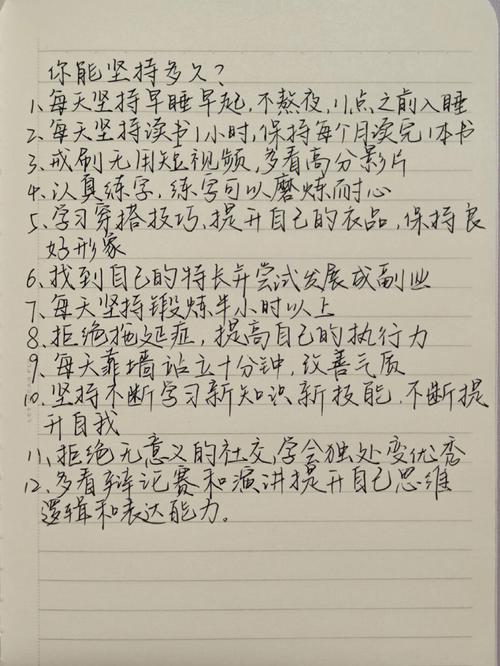 你能坚持多久？
1、每天坚持早睡早起，不熬夜，11点之前入睡
2、每天坚持读书1小时，保持每个月读完1本书
3、戒刷无用短视频，多看高分影片
4、认真练字，练字可以磨炼耐心
5、学习穿搭技巧、提升自己的衣品，保持良
好形象
6、找到自己的特长并尝试发展成副业
7、每天坚持锻炼半小时以上
8、拒绝拖延症，提高自己的执行力
9、每天靠墙站立十分钟，改善气质
10、坚持不断学习新知识新技能，不断提
升自我
11、拒绝无意义的社交，学会独处变优秀
12、多看辩论赛和演讲提升自己思维
逻辑和表达能力。